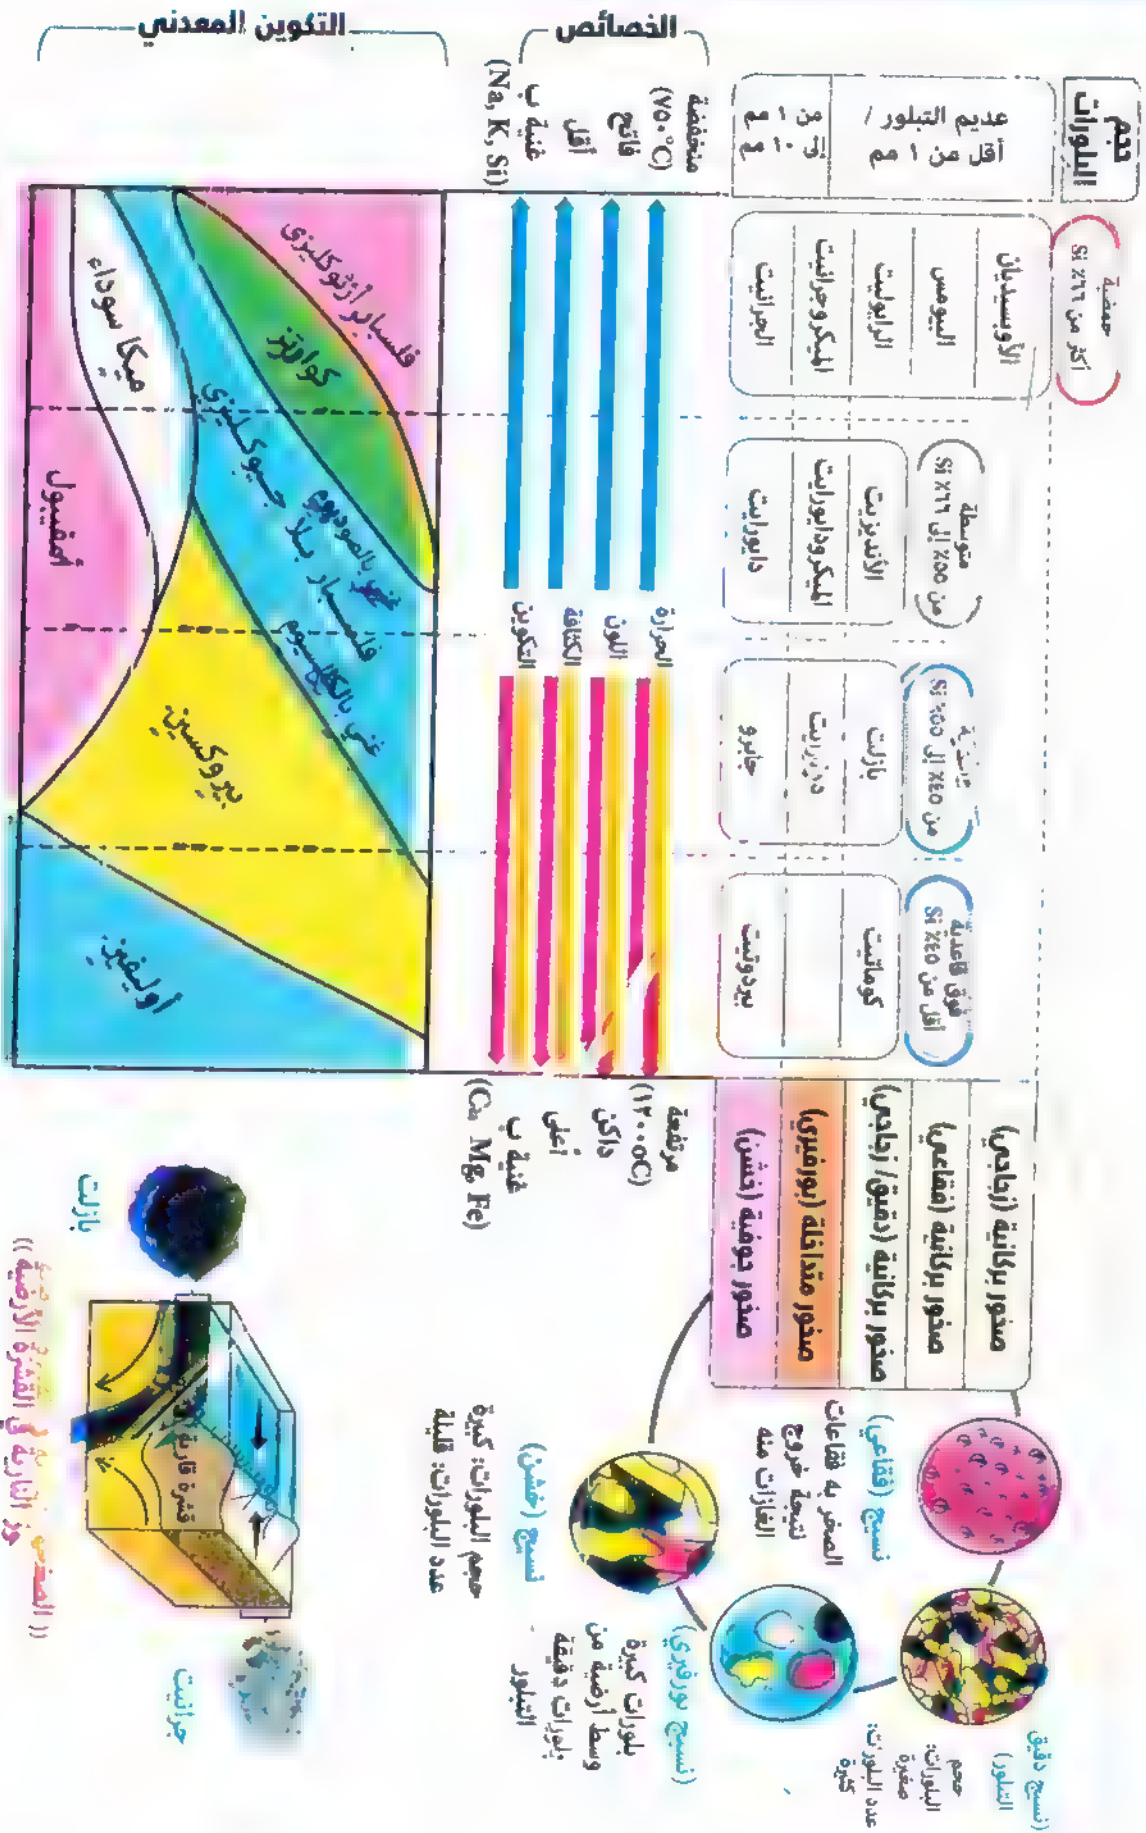 حجم
البلورات
عديم التبلور /
أقل من ١ مم
من ١ مم
إلى ١٠ مم
حمضية
أكثر من ٦٦٪ Si
الأوبسيديان
البيومس
الرايوليت
الميكروجرانيت
الجرانيت
متوسطة
من ٥٥٪ إلى ٦٦٪ Si
الأنديزيت
الميكرودايورايت
دايورايت
من ٤٥٪ إلى ٥٥٪ Si
بازلت
دوليرايت
جابرو
فوق قاعدية
أقل من ٤٥٪ Si
كوماتيت
بيردوتيت
صخور بركانية (زجاجي)
صخور بركانية (فقاعي)
صخور بركانية (دقيق/ زجاجي)
صخور متداخلة (بورفيري)
صخور جوفية (خشن)
الخصائص
منخفضة
(٧٥٠°C)
فاتح
أقل
غنية ب
(Na, K, Si)
الحرارة
اللون
الكثافة
التكوين
مرتفعة
(١٢٠٠oC)
داكن
أعلى
غنية ب
(Ca, Mg, Fe)
التكوين المعدني
فلسبار أرثوكليزي
كوارتز
غني بالصوديوم
فلسبار بلاجيوكليزي
غني بالكالسيوم
ميكا سوداء
أمفيبول
بيروكسين
أوليفين
نسيج (فقاعي)
الصخر به فقاعات
نتيجة خروج
الغازات منه
(نسيج دقيق
التبلور)
حجم
البلورات:
صغيرة
عدد البلورات:
كثيرة
(نسيج بورفيري)
بلورات كبيرة
وسط أرضية من
بلورات دقيقة
التبلور
نسيج (خشن)
حجم البلورات: كبيرة
عدد البلورات: قليلة
بازلت
قشرة قارية
جرانيت
النارية في القشرة الأرضية